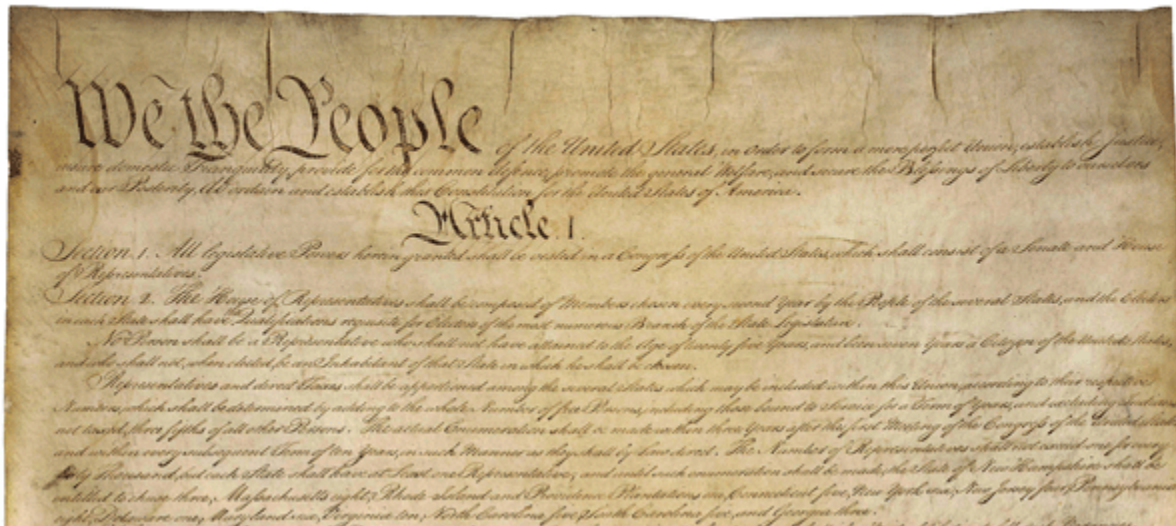 We the People of the United States, in Order to form a more perfect Union, establish Justice,
insure domestic Tranquility, provide for the common defence, promote the general Welfare, and secure the Blessings of Liberty to ourselves
and our Posterity, do ordain and establish this Constitution for the United States of America.
Article I
Section 1. All legislative Powers herein granted shall be vested in a Congress of the United States, which shall consist of a Senate and House
of Representatives.
Section 2. The House of Representatives shall be composed of Members chosen every second Year by the People of the several States, and the Electors
in each State shall have the Qualifications requisite for Electors of the most numerous Branch of the State Legislature.
No Person shall be a Representative who shall not have attained to the Age of twenty five Years, and been seven Years a Citizen of the United States,
and who shall not, when elected, be an Inhabitant of that State in which he shall be chosen.
Representatives and direct Taxes shall be apportioned among the several States which may be included within this Union, according to their respective
Numbers, which shall be determined by adding to the whole Number of free Persons, including those bound to Service for a Term of Years, and excluding Indians
not taxed, three fifths of all other Persons. The actual Enumeration shall be made within three Years after the first Meeting of the Congress of the United States,
and within every subsequent Term of ten Years, in such Manner as they shall by Law direct. The Number of Representatives shall not exceed one for every
thirty Thousand, but each State shall have at Least one Representative; and until such enumeration shall be made, the State of New Hampshire shall be
entitled to chuse three, Massachusetts eight, Rhode Island and Providence Plantations one, Connecticut five, New York six, New Jersey four, Pennsylvania
eight, Delaware one, Maryland six, Virginia ten, North Carolina five, South Carolina five, and Georgia three.